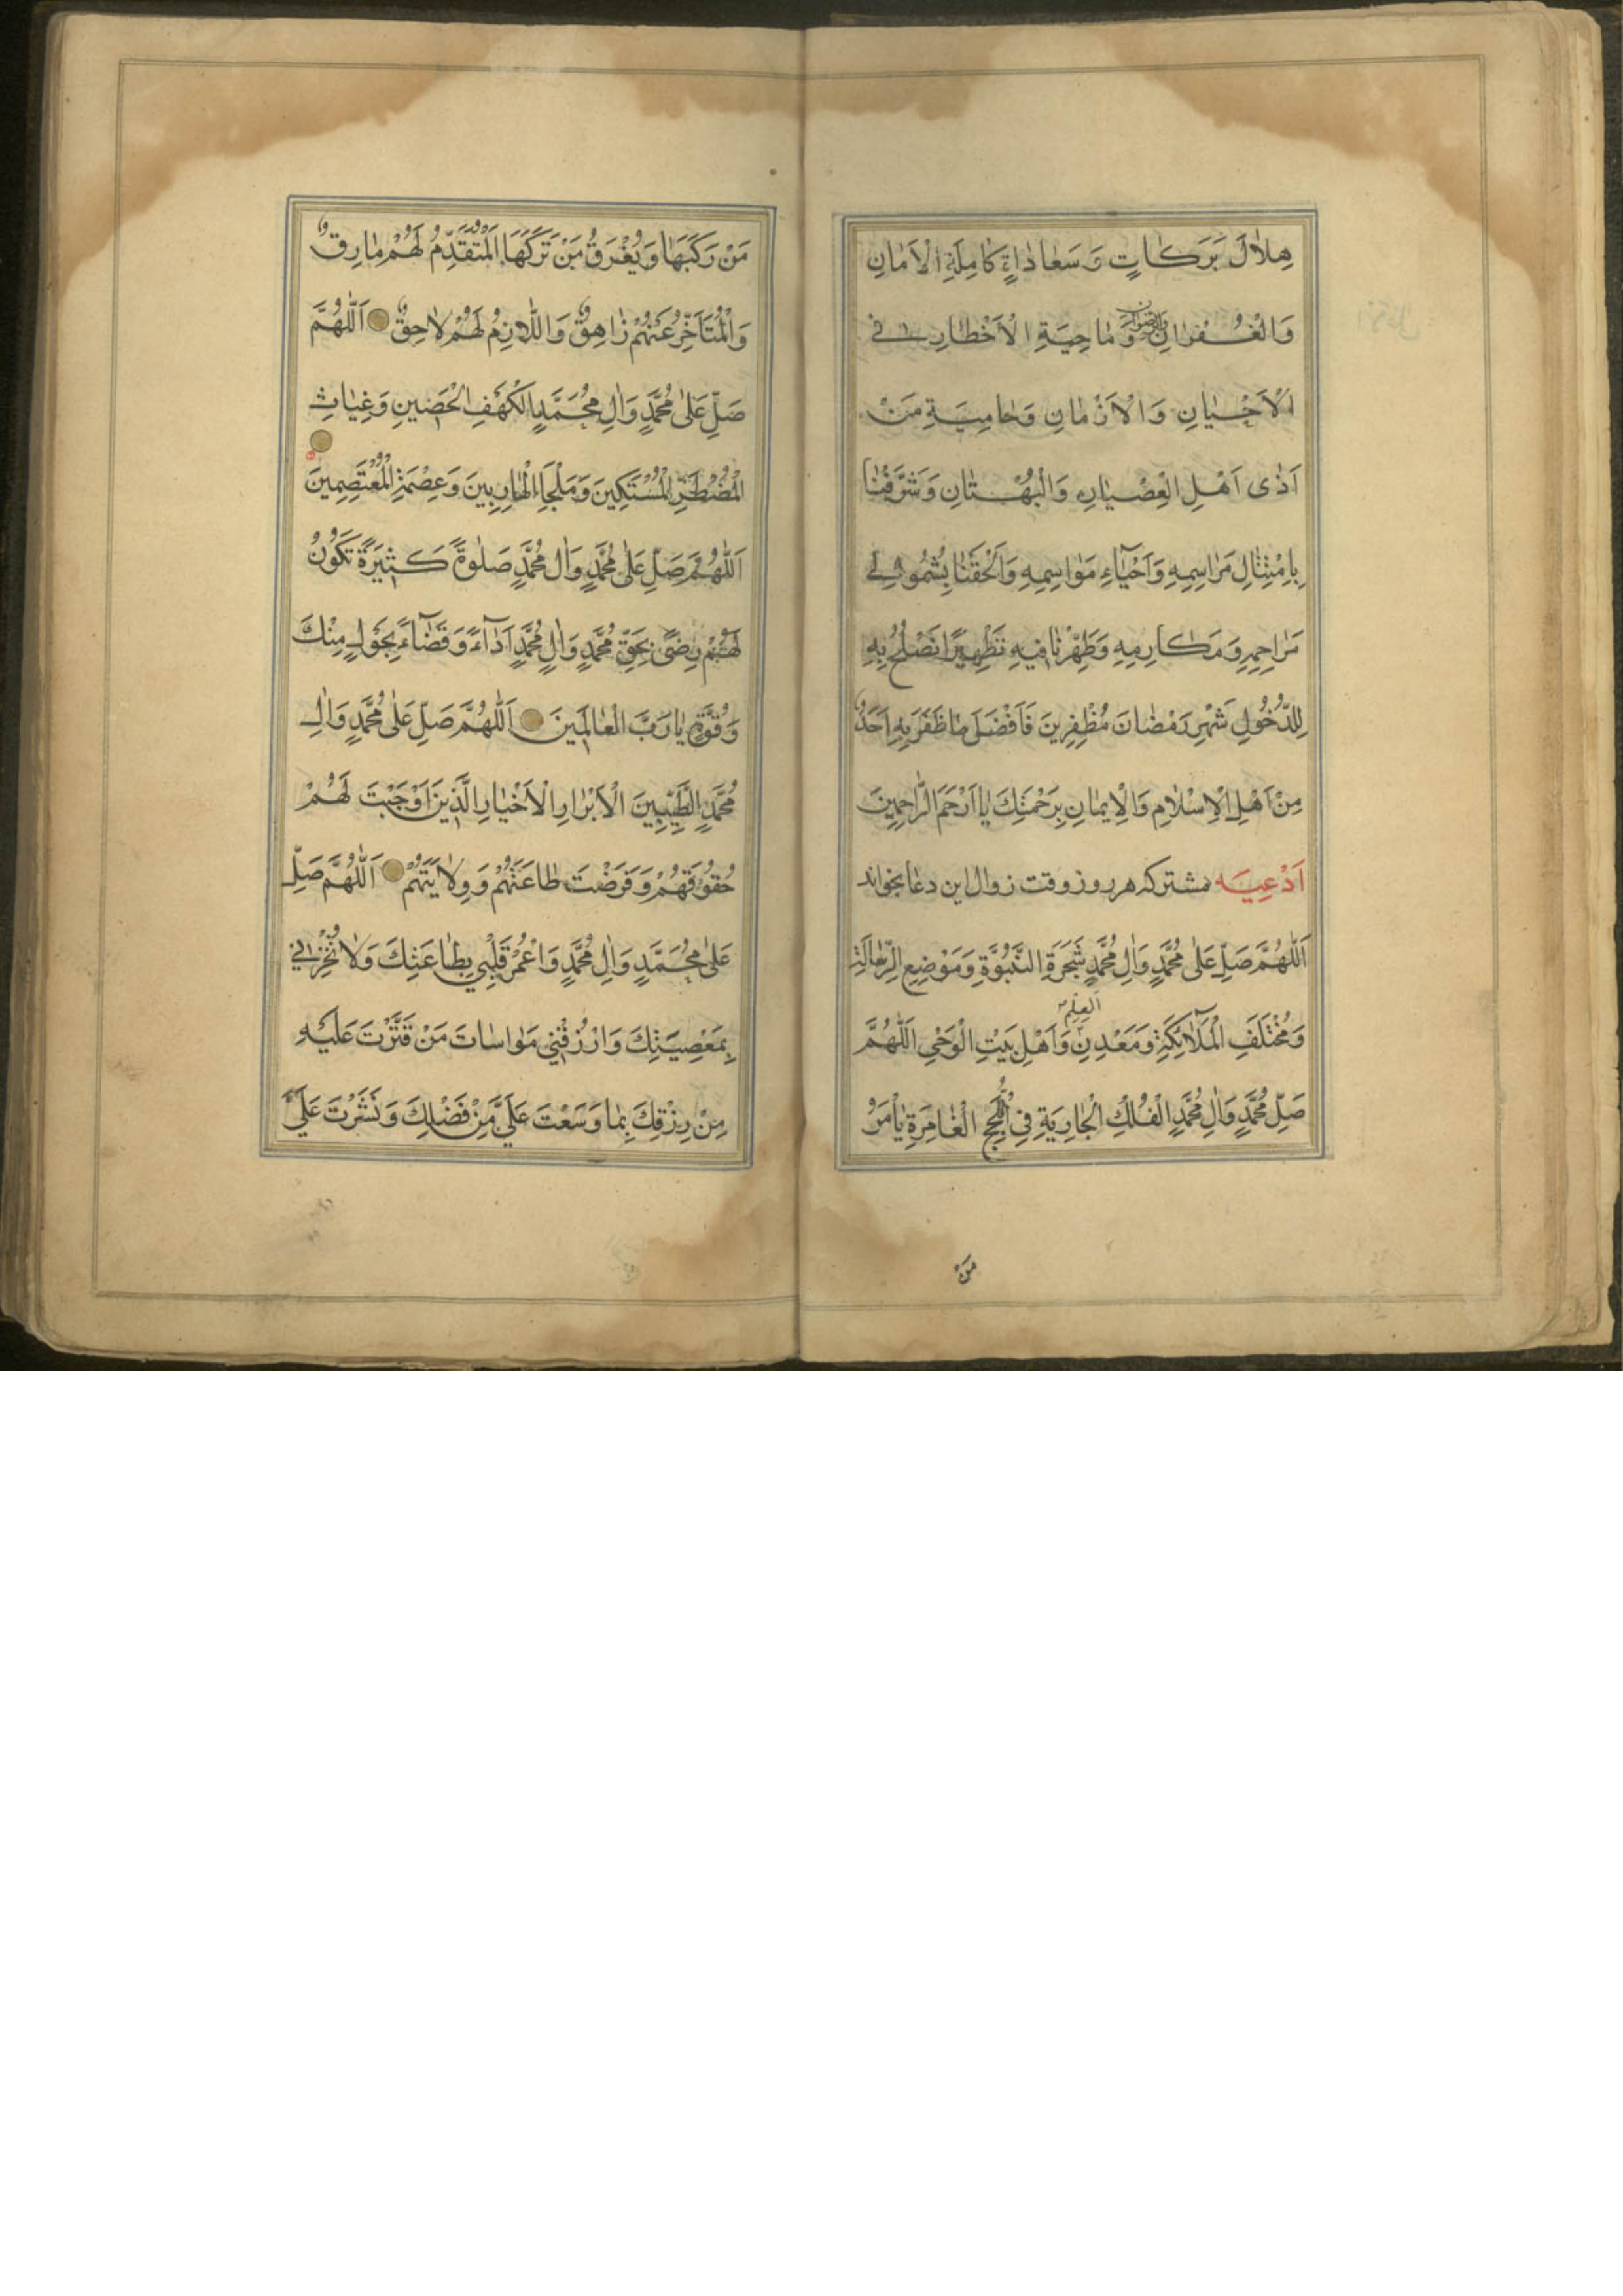 هِلاٰلَ بَرَكاتٍ وَسَعاداتٍ كامِلَةِ الْاَمانِ
وَالْغُفْرانِ وَماحِيَةِ الْاَخْطارِ فِى
الْاَحْيانِ وَالْاَزْمانِ وَحامِيَةٍ مِنْ
اَذٰى اَهْلِ الْعِصْيانِ وَالْبُهْتانِ وَشَرِّفْنا
بِامْتِثالِ مَراسِمِهِ وَاَحْيآءِ مَواسِمِهِ وَاَلْحِقْنا بِشُمُولِ
مَراحِمِهِ وَمَكارِمِهِ وَطَهِّرْنا فيهِ تَطْهِيرًا نَصْلُحُ بِهِ
لِلدُّخُولِ شَهْرِ رَمَضانَ مُظْفِرِينَ فَاَفْضَلَ ما ظَفَرَ بِهِ اَحَدٌ
مِنْ اَهْلِ الْاِسْلامِ وَالْاِيمانِ بِرَحْمَتِكَ يا اَرْحَمَ الرّاحِمِينَ
اَدْعِيَه مشتركه هر روز وقت زوال اين دعا بخواند
اَللّٰهُمَّ صَلِّ عَلٰى مُحَمَّدٍ وَالِ مُحَمَّدٍ شَجَرَةِ النُّبُوَّةِ وَمَوْضِعِ الرِّسالَةِ
وَمُخْتَلَفِ الْمَلآئِكَةِ وَمَعْدِنِ الْعِلْمِ وَاَهْلِ بَيْتِ الْوَحْىِ اَللّٰهُمَّ
صَلِّ مُحَمَّدٍ وَالِ مُحَمَّدٍ الْفُلْكِ الْجارِيَةِ فِى اللُّجَجِ الْغامِرَةِ يَاْمَنُ
مَنْ
مَنْ رَكِبَها وَيُغْرَقُ مَنْ تَرَكَهَا الْمُتَقَدِّمُ لَهُمْ مارِقٌ
وَالْمُتَاَخِّرُ عَنْهُمْ زاهِقٌ وَاللّازِمُ لَهُمْ لاحِقٌ اَللّٰهُمَّ
صَلِّ عَلٰى مُحَمَّدٍ وَالِ مُحَمَّدٍ الْكَهْفِ الْحَصِينِ وَغِياثِ
الْمُضْطَرِّ الْمُسْتَكِينَ وَمَلْجَاِ الْهارِبِينَ وَعِصْمَةِ الْمُعْتَصِمِينَ
اَللّٰهُمَّ صَلِّ عَلٰى مُحَمَّدٍ وَالِ مُحَمَّدٍ صَلٰوةً كَثِيرَةً تَكُونُ
لَهُمْ رِضًى بِحَقِّ مُحَمَّدٍ وَالِ مُحَمَّدٍ اَدآءً وَقَضآءً بِحَوْلٍ مِنْكَ
وَقُوَّةٍ يا رَبَّ الْعالَمِينَ اَللّٰهُمَّ صَلِّ عَلٰى مُحَمَّدٍ وَالِ
مُحَمَّدٍ الطَّيِّبِينَ الْاَبْرارِ الْاَخْيارِ الَّذِينَ اَوْجَبْتَ لَهُمْ
حُقُوقَهُمْ وَفَرَضْتَ طاعَتَهُمْ وَوِلايَتَهُمْ اَللّٰهُمَّ صَلِّ
عَلٰى مُحَمَّدٍ وَالِ مُحَمَّدٍ وَاعْمُرْ قَلْبِي بِطاعَتِكَ وَلا تُخْزِنِي
بِمَعْصِيَتِكَ وَارْزُقْنِي مَواساتَ مَنْ قَتَّرْتَ عَلَيْهِ
مِنْ رِزْقِكَ بِما وَسَّعْتَ عَلَىَّ مِنْ فَضْلِكَ وَنَشَرْتَ عَلَىَّ